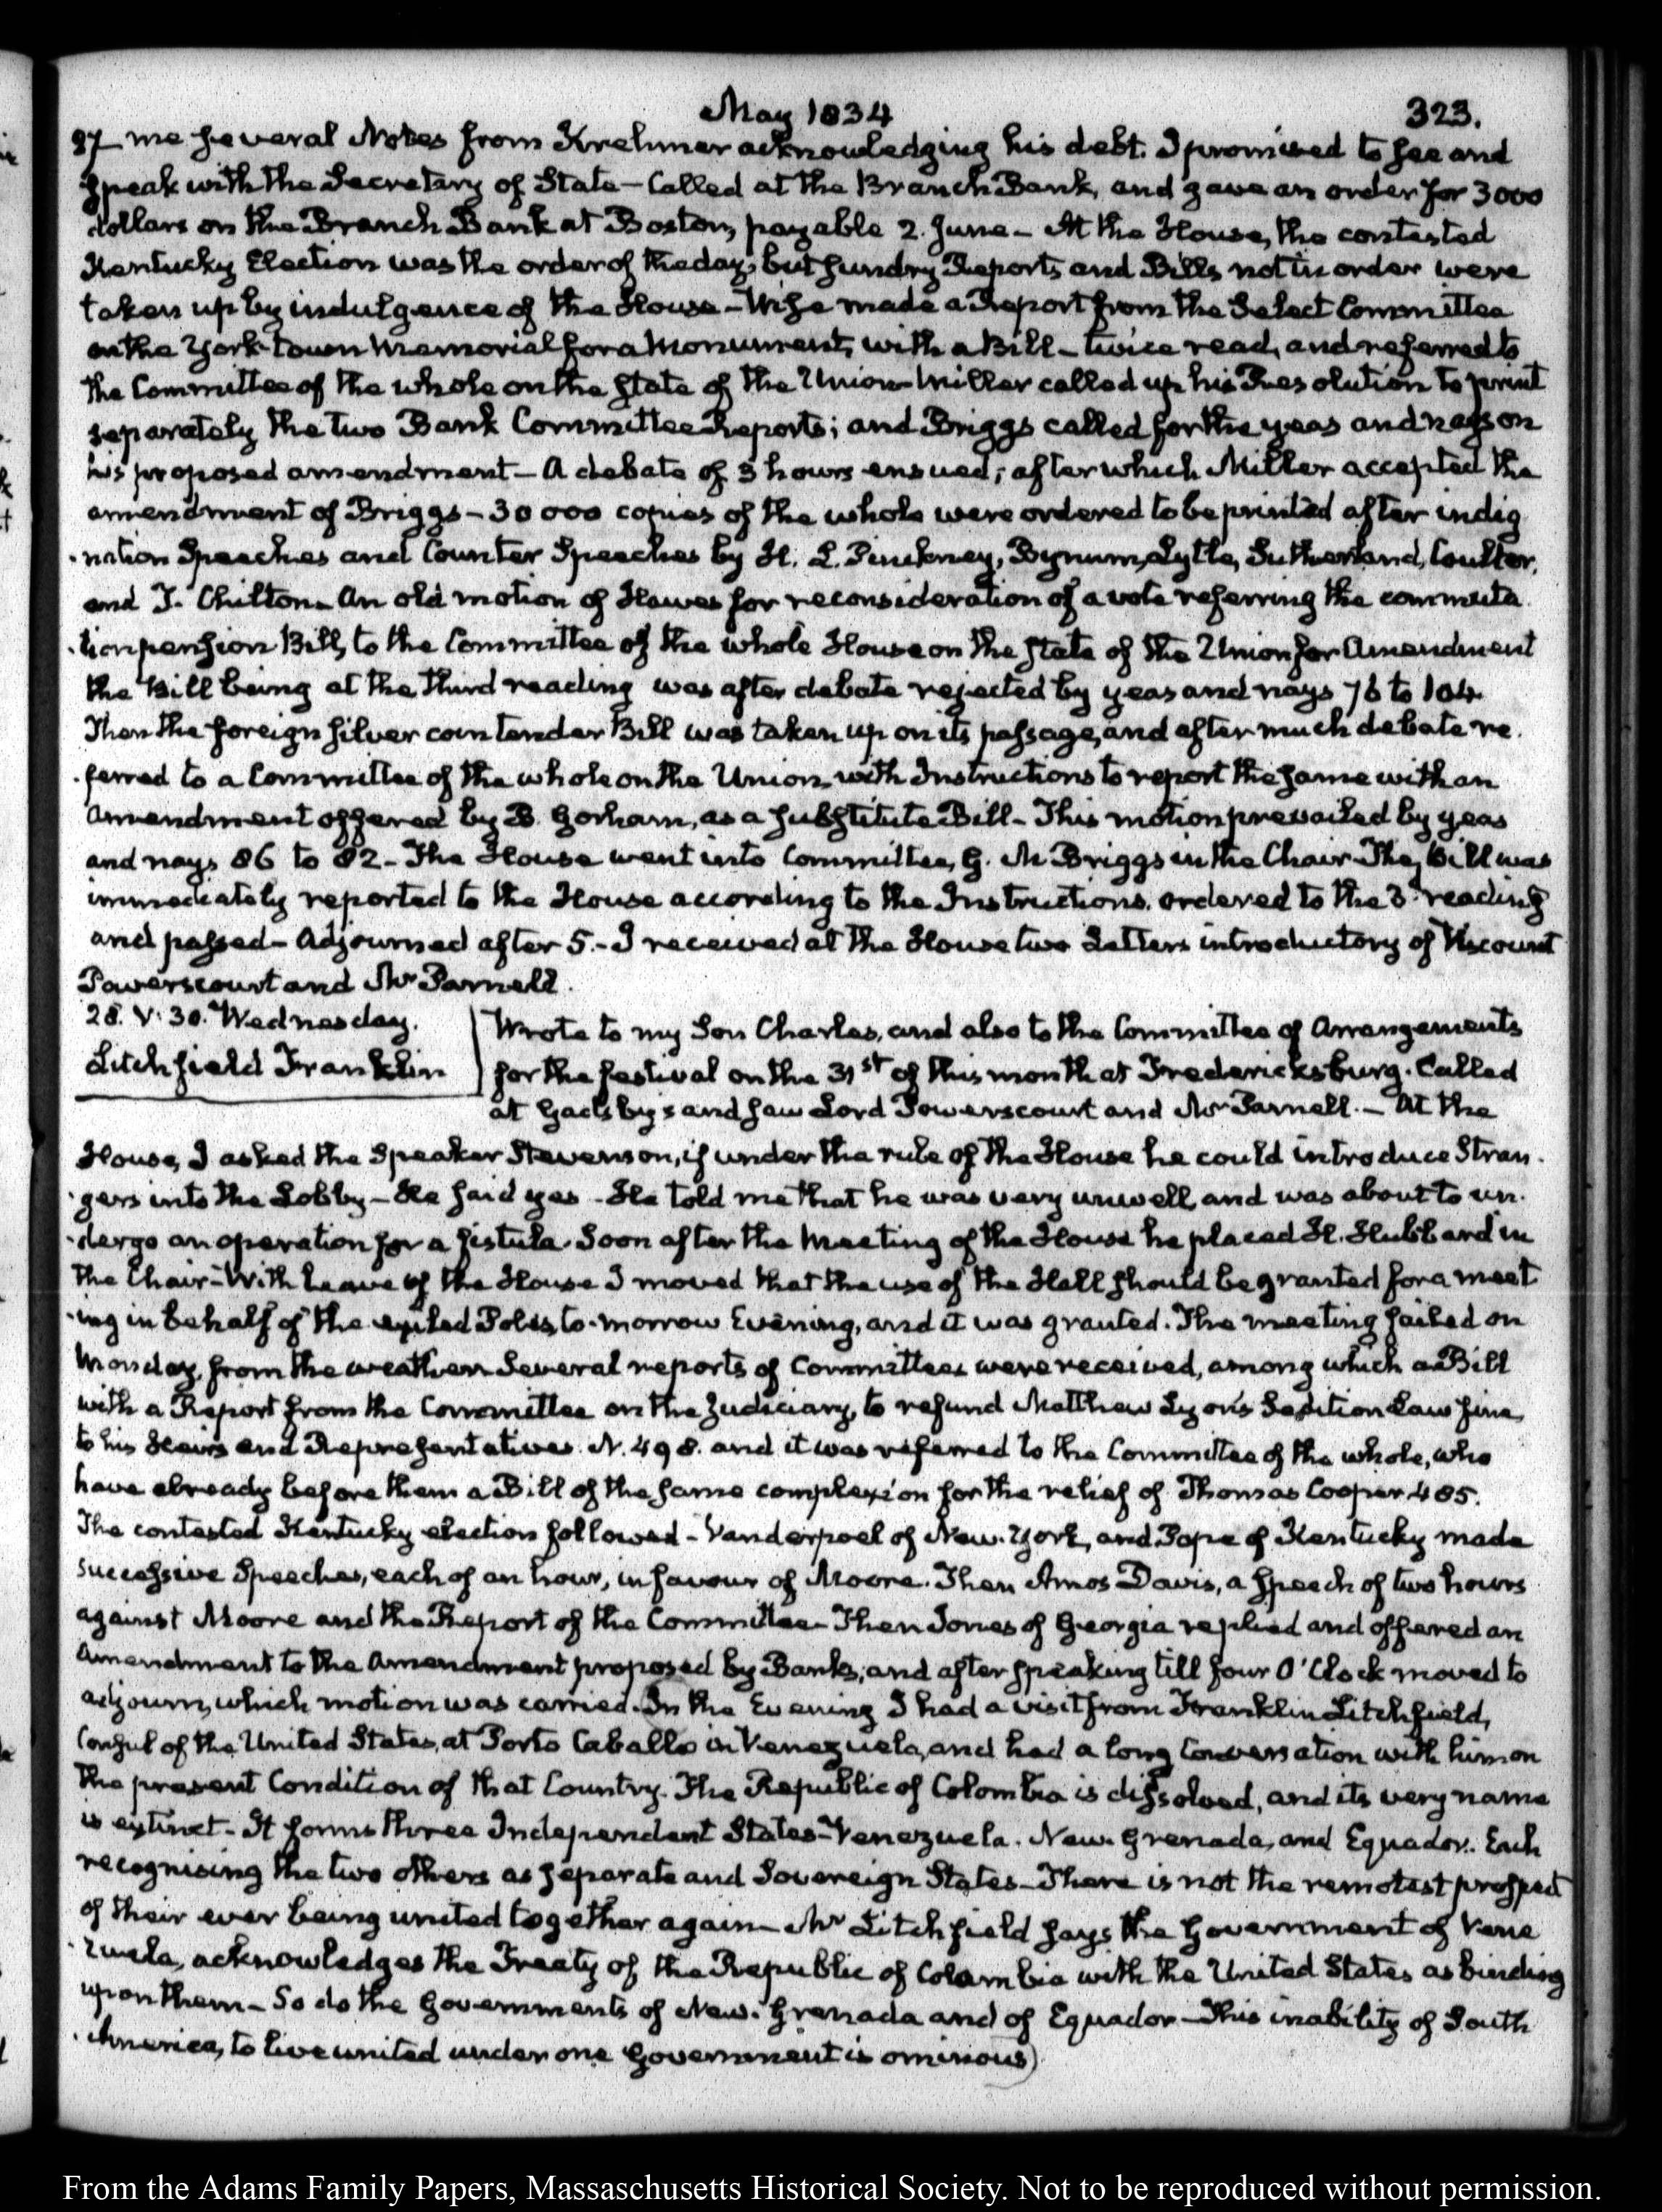 May 1834
323.
27 me several Notes from Krehmer acknowledging his debt. I promised to see and
speak with the Secretary of State – Called at the Branch Bank, and gave an order for 3000
dollars on the Branch Bank at Boston, payable 2. June – At the House, the contested
Kentucky Election was the order of the day; but sundry Reports and Bills not in order were
taken up by indulgence of the House – Wise made a Report from the Select Committee
on the York-town Memorial for a Monument, with a Bill – twice read, and referred to
the Committee of the whole on the state of the Union – Miller called up his Resolution to print
separately the two Bank Committee Reports; and Briggs called for the yeas and nays on
his proposed amendment – A debate of 3 hours ensued; after which Miller accepted the
amendment of Briggs – 30000 copies of the whole were ordered to be printed after indig
-nation Speeches and Counter Speeches by H. L. Pinckney, Bynum, Lytle, Sutherland, Coulter,
and T. Chilton – An old motion of Hawes for reconsideration of a vote referring the commuta
-tion pension Bill, to the Committee of the whole House on the state of the Union for Amendment
the Bill being at the third reading was after debate rejected by yeas and nays 76 to 104.
Then the foreign silver coin tender Bill was taken up on its passage, and after much debate re-
-ferred to a Committee of the whole on the Union, with Instructions to report the same with an
Amendment offered by B. Gorham, as a substitute Bill – This motion prevailed by yeas
and nays 86 to 82 – The House went into Committee, G. N. Briggs in the Chair – The Bill was
immediately reported to the House according to the Instructions, ordered to the 3d reading
and passed – Adjourned after 5. – I received at the House two Letters introductory of Viscount
Powerscourt and Mr Parnell.
28. V: 30. Wednesday.
Litchfield Franklin
Wrote to my Son Charles, and also to the Committee of Arrangements
for the festival on the 31st of this month at Fredericksburg. Called
at Gadsby's and saw Lord Powerscourt and Mr Parnell. – At the
House, I asked the Speaker Stevenson, if under the rule of the House he could introduce Stran-
-gers into the Lobby – He said yes – He told me that he was very unwell, and was about to un-
-dergo an operation for a fistula. Soon after the Meeting of the House he placed H. Hubbard in
the Chair – With leave of the House I moved that the use of the Hall should be granted for a meet
-ing in behalf of the exiled Poles, to-morrow Evening, and it was granted. The meeting failed on
Monday, from the weather. Several reports of Committees were received, among which a Bill
with a Report from the Committee on the Judiciary, to refund Matthew Lyon's Sedition Law fine,
to his Heirs and Representatives. N. 498. and it was referred to the Committee of the whole, who
have already before them a Bill of the same complexion for the relief of Thomas Cooper 485.
The contested Kentucky election followed – Vanderpoel of New-York, and Pope of Kentucky made
successive Speeches, each of an hour, in favour of Moore. Then Amos Davis, a speech of two hours
against Moore and the Report of the Committee – Then Jones of Georgia replied and offered an
Amendment to the Amendment proposed by Banks, and after speaking till four O'Clock moved to
adjourn, which motion was carried. In the Evening I had a visit from Franklin Litchfield,
Consul of the United States, at Porto Caballo in Venezuela, and had a long Conversation with him on
the present Condition of that Country. The Republic of Colombia is dissolved, and its very name
is extinct – It forms three Independent States – Venezuela. New-Grenada, and Equador. Each
recognising the two others as separate and Sovereign States – There is not the remotest prospect
of their ever being united together again – Mr Litchfield says the Government of Vene
-zuela, acknowledges the Treaty of the Republic of Colombia with the United States as binding
upon them – So do the Governments of New-Grenada and of Equador – This inability of South
-America, to live united under one Government is ominous)
From the Adams Family Papers, Massachusetts Historical Society. Not to be reproduced without permission.